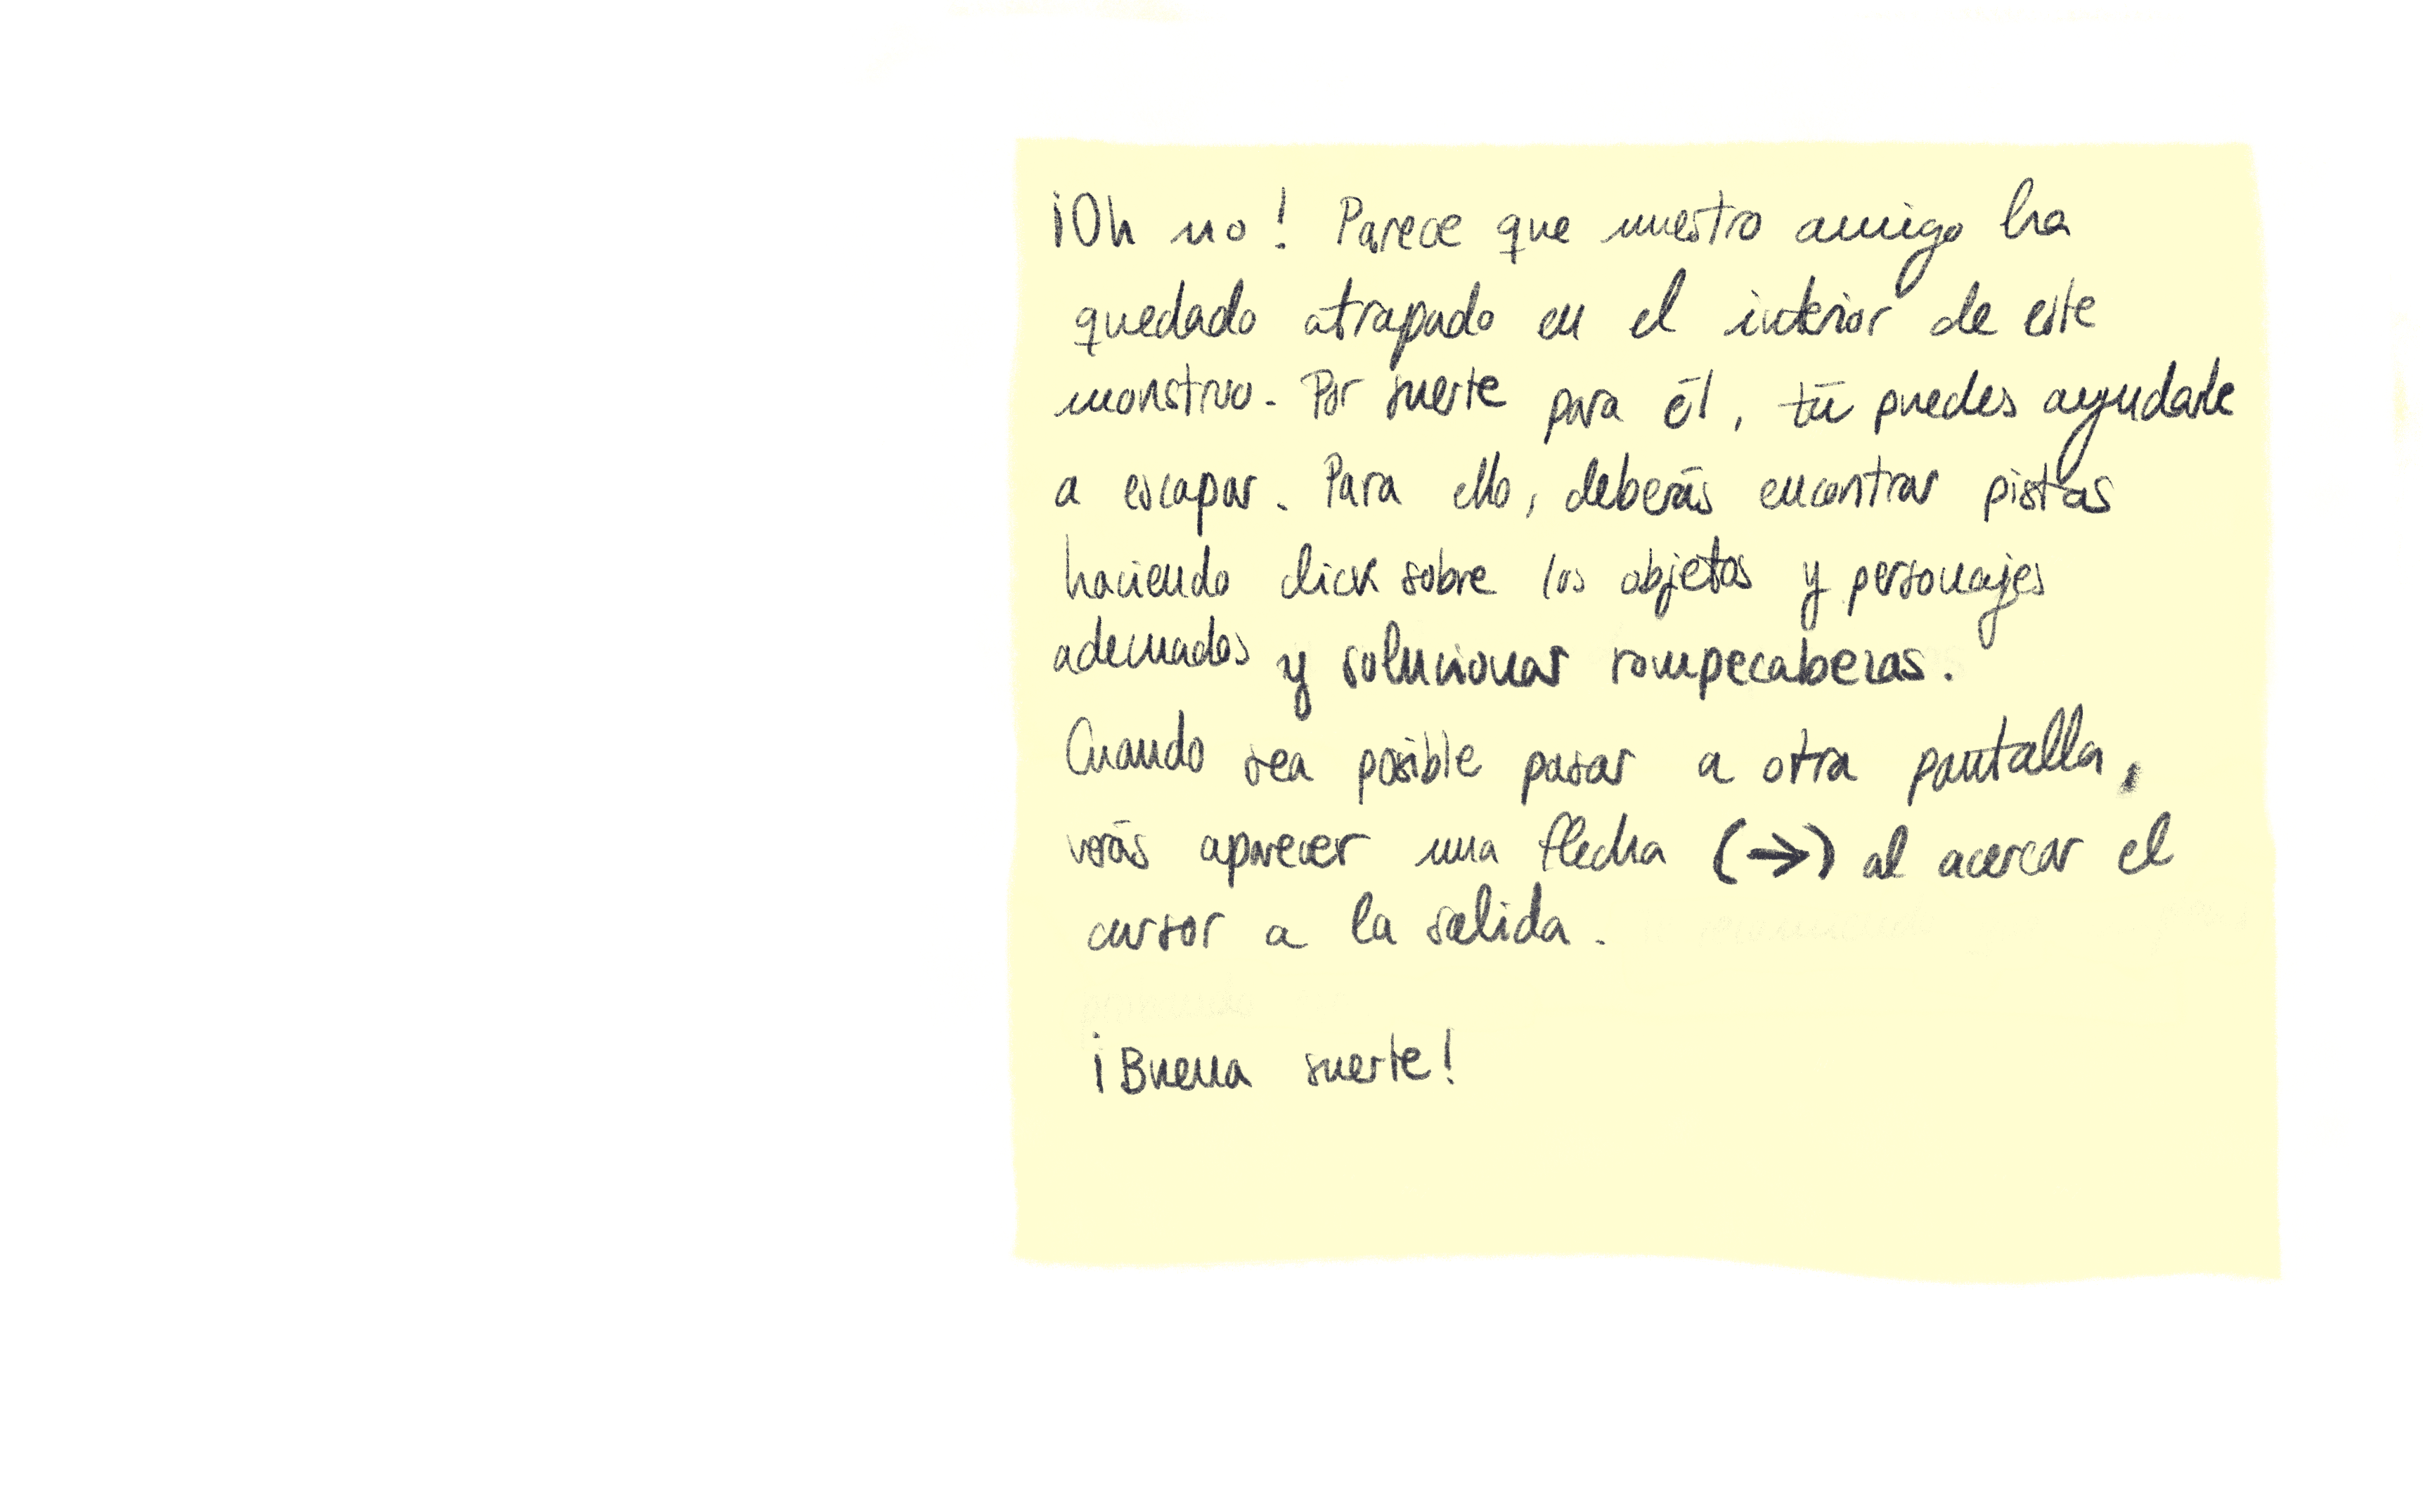 ¡Oh no! Parece que nuestro amigo ha
quedado atrapado en el interior de este
monstruo. Por suerte para él, tú puedes ayudarle
a escapar. Para ello, deberás encontrar pistas
haciendo click sobre los objetos y personajes
adecuados y solucionar rompecabezas.
Cuando sea posible pasar a otra pantalla,
verás aparecer una flecha (→) al acercar el
cursor a la salida.
¡Buena suerte!